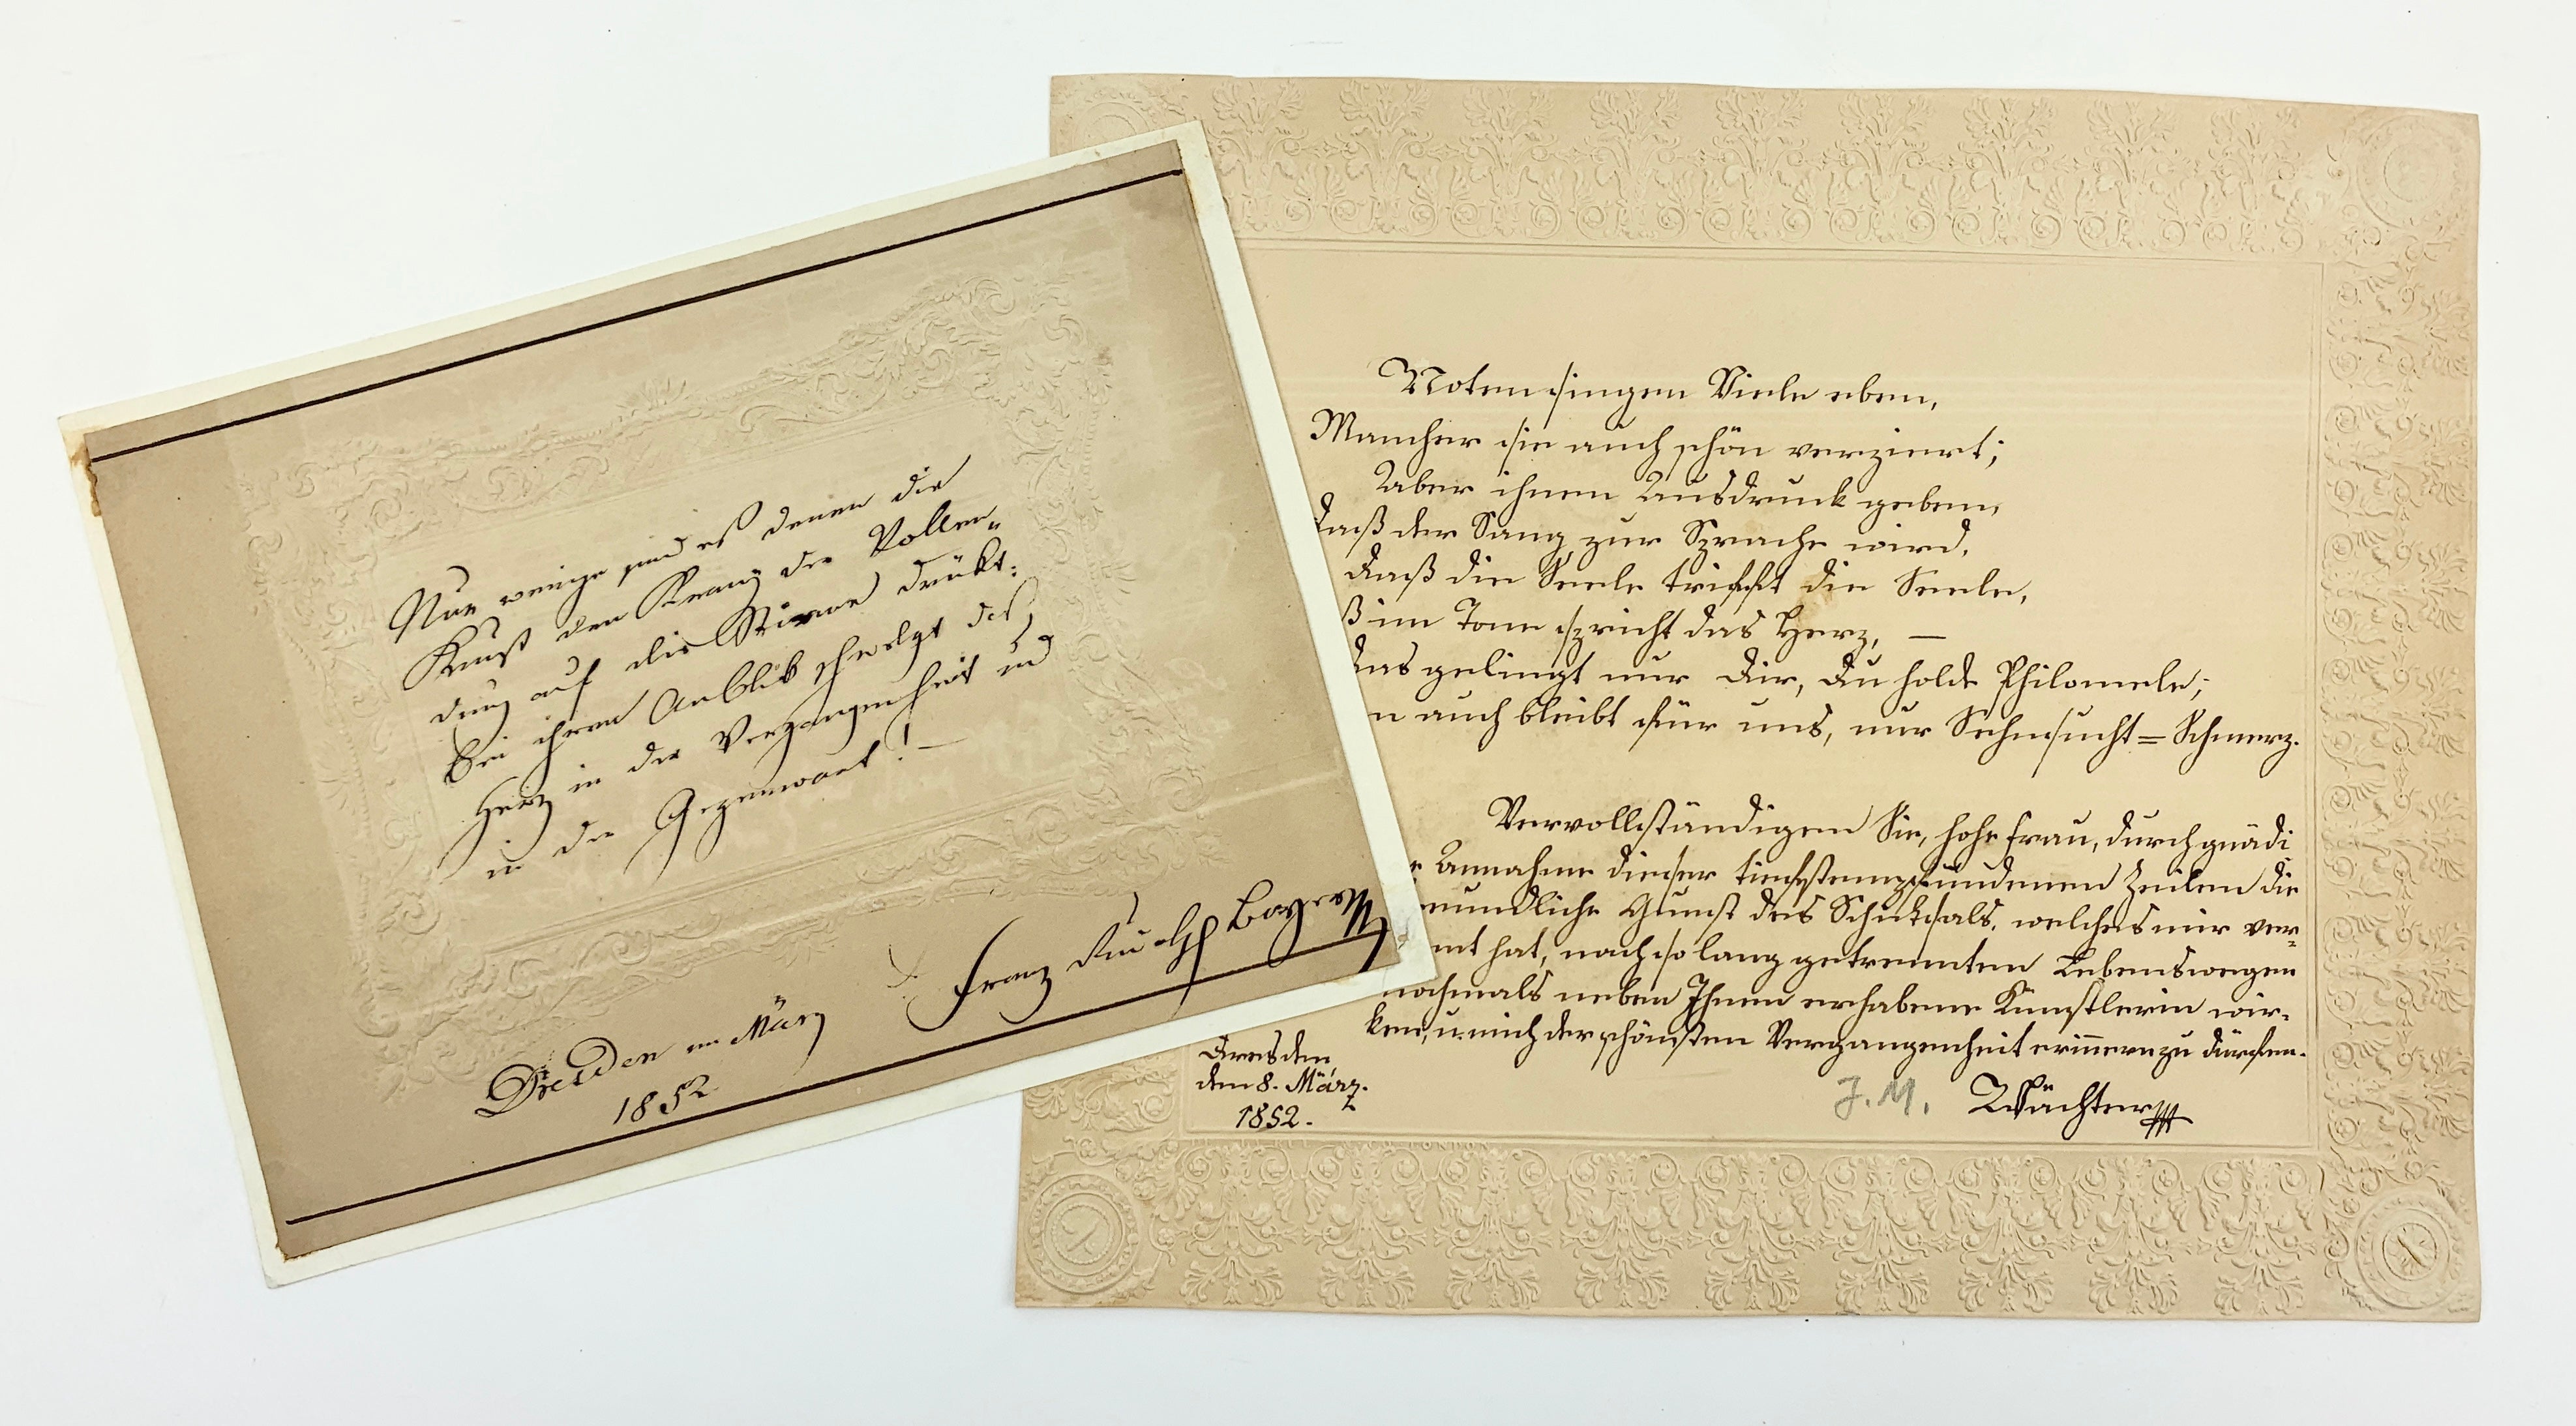 Nur wenige sind es denen die
Kunst den Kranz der Vollen-
dung auf die Stirne drükt:
Bei ihrem Anblik schwelgt das
Herz in der Vergangenheit und
in der Gegenwart! –
Dresden im März
1852
Franz Rudolph Bayer
Noten singen Viele eben,
Mancher sie auch schön verziert;
Aber ihnen Ausdruck geben,
daß der Sang zur Sprache wird,
daß die Seele trifft die Seele,
ß im Tone spricht das Herz, —
das gelingt nur Dir, Du holde Philomele;
n auch bleibt für uns, nur Sehnsucht=Schmerz.
Vervollständigen Sie, hohe Frau, durch gnädi
e Annahme dieser tiefstempfundenen Zeilen die
eundliche Gunst des Schicksals, welches mir ver-
nt hat, nach so lang getrennten Lebenswegen
nochmals neben Ihnen erhabene Künstlerin wir-
ken, u. mich der schönsten Vergangenheit erinnern zu dürfen.
Dresden,
den 8. März.
1852.
J. M. Wächter